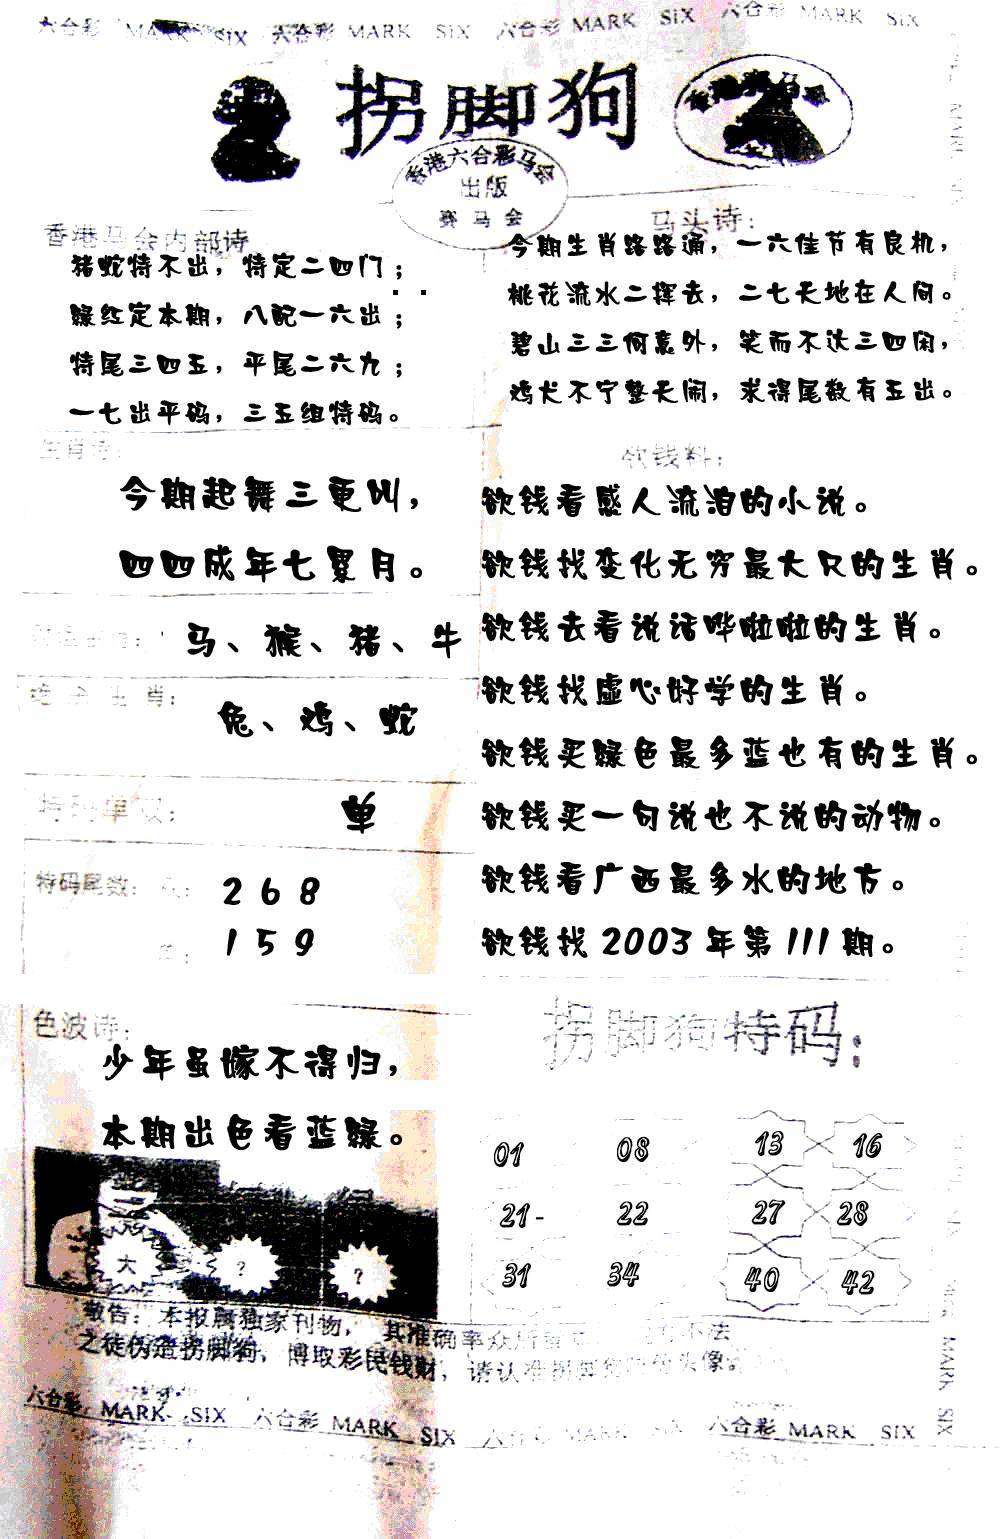 六合彩 MARK SIX 六合彩 MARK SIX 六合彩 MARK SIX 六合彩 MARK SIX
拐脚狗
香港六合彩马会
出版
赛马会
香港马会内部诗
猪蛇特不出，特定二四门；
绿红定本期，八配一六出；
特尾三四五，平尾二六九；
一七出平码，三五组特码。
马头诗：
今期生肖路路通，一六佳节有良机，
桃花流水二挥去，二七天地在人间。
碧山三三何意外，笑而不达三四闲，
鸡犬不宁整天闹，求得尾数有五出。
生肖诗：
今期起舞三更叫，
四四成年七累月。
马、猴、猪、牛
绝杀生肖：
兔、鸡、蛇
特码单双：
单
特码尾数：
2 6 8
1 5 9
欲钱料：
欲钱看感人流泪的小说。
欲钱找变化无穷最大只的生肖。
欲钱去看说话哗啦啦的生肖。
欲钱找虚心好学的生肖。
欲钱买绿色最多蓝也有的生肖。
欲钱买一句说也不说的动物。
欲钱看广西最多水的地方。
欲钱找 2003 年第 111 期。
色波诗：
少年虽嫁不得归，
本期出色看蓝绿。
大 ? ?
拐脚狗特码：
01 08 13 16
21- 22 27 28
31 34 40 42
敬告：本报属独家刊物，其准确率众所 不法
之徒伪造拐脚狗，博取彩民钱财，请认准拐脚狗 头像。
六合彩 MARK SIX 六合彩 MARK SIX 六合彩 MARK SIX 六合彩 MARK SIX
MARK SIX